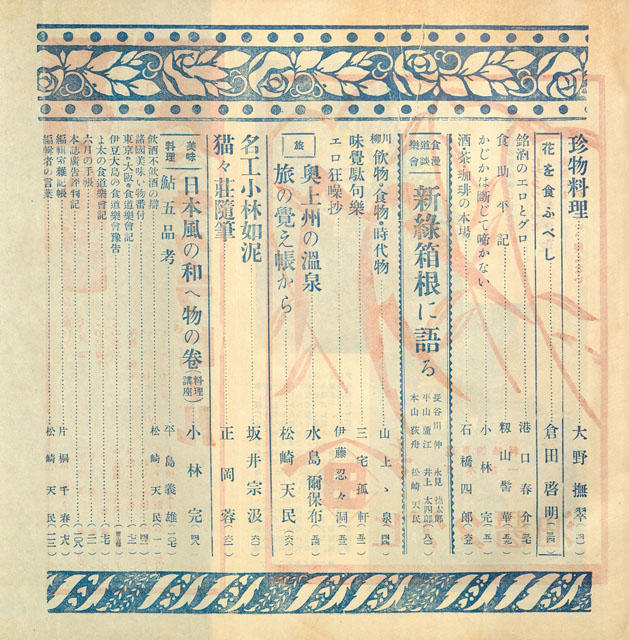 珍物料理 大野撫翠
花を食ふべし 倉田啓明
銘酒のエロとグロ 港口春介
食助平記 籾山髻華
かじかは断じて啼かない 小林完
酒・茶・珈琲の本場 石橋四郎
食道樂漫談會
新綠箱根に語る
長谷川伸 永見德太郎
平山蘆江 井上太四郎
本山荻舟 松崎天民
川柳 飮物・食物・時代物 山上ヽ泉
味覺駄句樂 三宅孤軒
エロ狂噪抄 伊藤忍々洞
旅
奥上州の溫泉 水島爾保布
旅の覺え帳から 松崎天民
名工小林如泥 坂井宗汲
猫々莊隨筆 正岡蓉
美味 日本風の和へ物の卷(料理講座) 小林完
料理 鮎五品考 平島義雄
飮酒不飮酒の辯 松崎天民
諸國美味い物番付
東京・大阪食道樂會記
伊豆大島の食道樂會豫告
よ太の食道樂會記
六月の手帳
本誌廣告評判記
編輯室雜記帳 片桐千春
編輯者の言葉 松崎天民